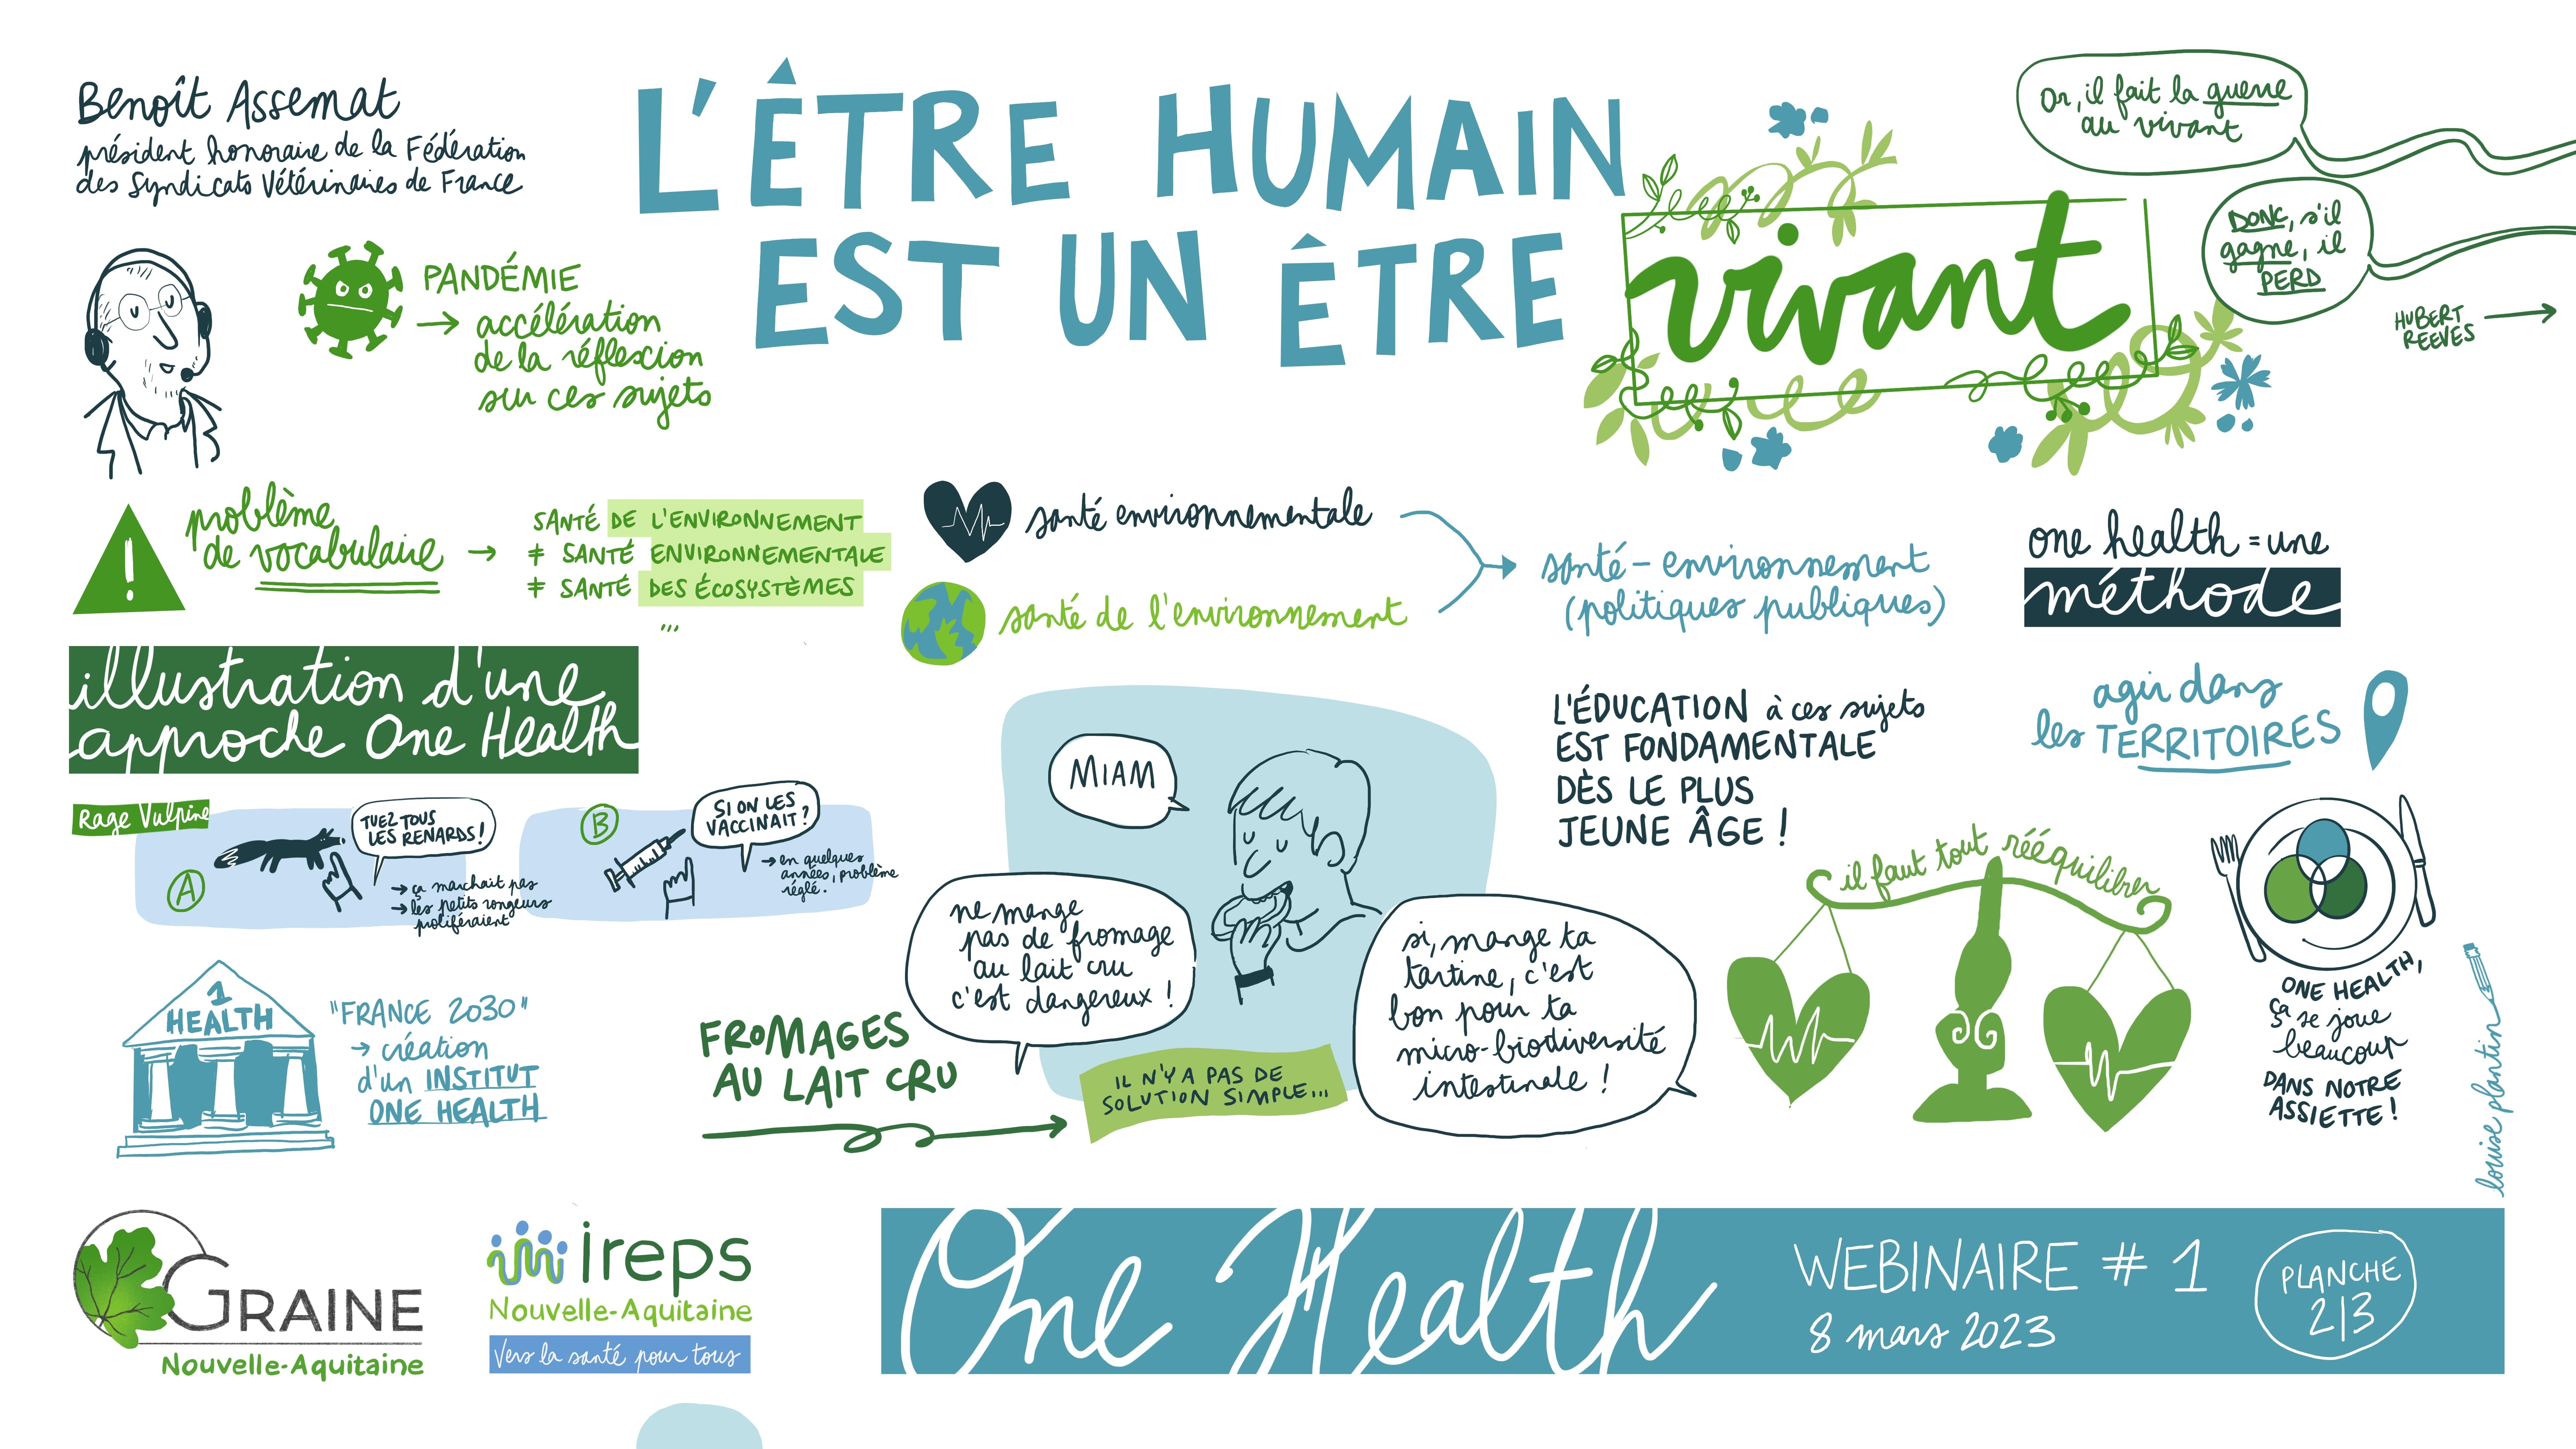 Benoît Assemat
président honoraire de la Fédération
des Syndicats Vétérinaires de France
L'ÊTRE HUMAIN
EST UN ÊTRE
vivant
Or, il fait la guerre
au vivant
DONC, s'il
gagne, il
PERD
HUBERT
REEVES
PANDÉMIE
→ accélération
de la réflexion
sur ces sujets
!
problème
de vocabulaire →
SANTÉ DE L'ENVIRONNEMENT
≠ SANTÉ ENVIRONNEMENTALE
≠ SANTÉ DES ÉCOSYSTÈMES
...
santé environnementale
santé de l'environnement
santé - environnement
(politiques publiques)
one health = une
méthode
illustration d'une
approche One Health
Rage Vulpine
A
TUEZ TOUS
LES RENARDS !
→ ça marchait pas
→ les petits rongeurs
proliféraient
B
SI ON LES
VACCINAIT ?
→ en quelques
années, problème
réglé.
MIAM
ne mange
pas de fromage
au lait cru
c'est dangereux !
si, mange ta
tartine, c'est
bon pour ta
micro-biodiversité
intestinale !
FROMAGES
AU LAIT CRU
IL N'Y A PAS DE
SOLUTION SIMPLE...
L'ÉDUCATION à ces sujets
EST FONDAMENTALE
DÈS LE PLUS
JEUNE ÂGE !
agir dans
les TERRITOIRES
il faut tout rééquilibrer
ONE HEALTH,
ça se joue
beaucoup
DANS NOTRE
ASSIETTE !
1
HEALTH
"FRANCE 2030"
→ création
d'un INSTITUT
ONE HEALTH
louise plantin
GRAINE
Nouvelle-Aquitaine
ireps
Nouvelle-Aquitaine
Vers la santé pour tous
One Health
WEBINAIRE # 1
8 mars 2023
PLANCHE
2|3